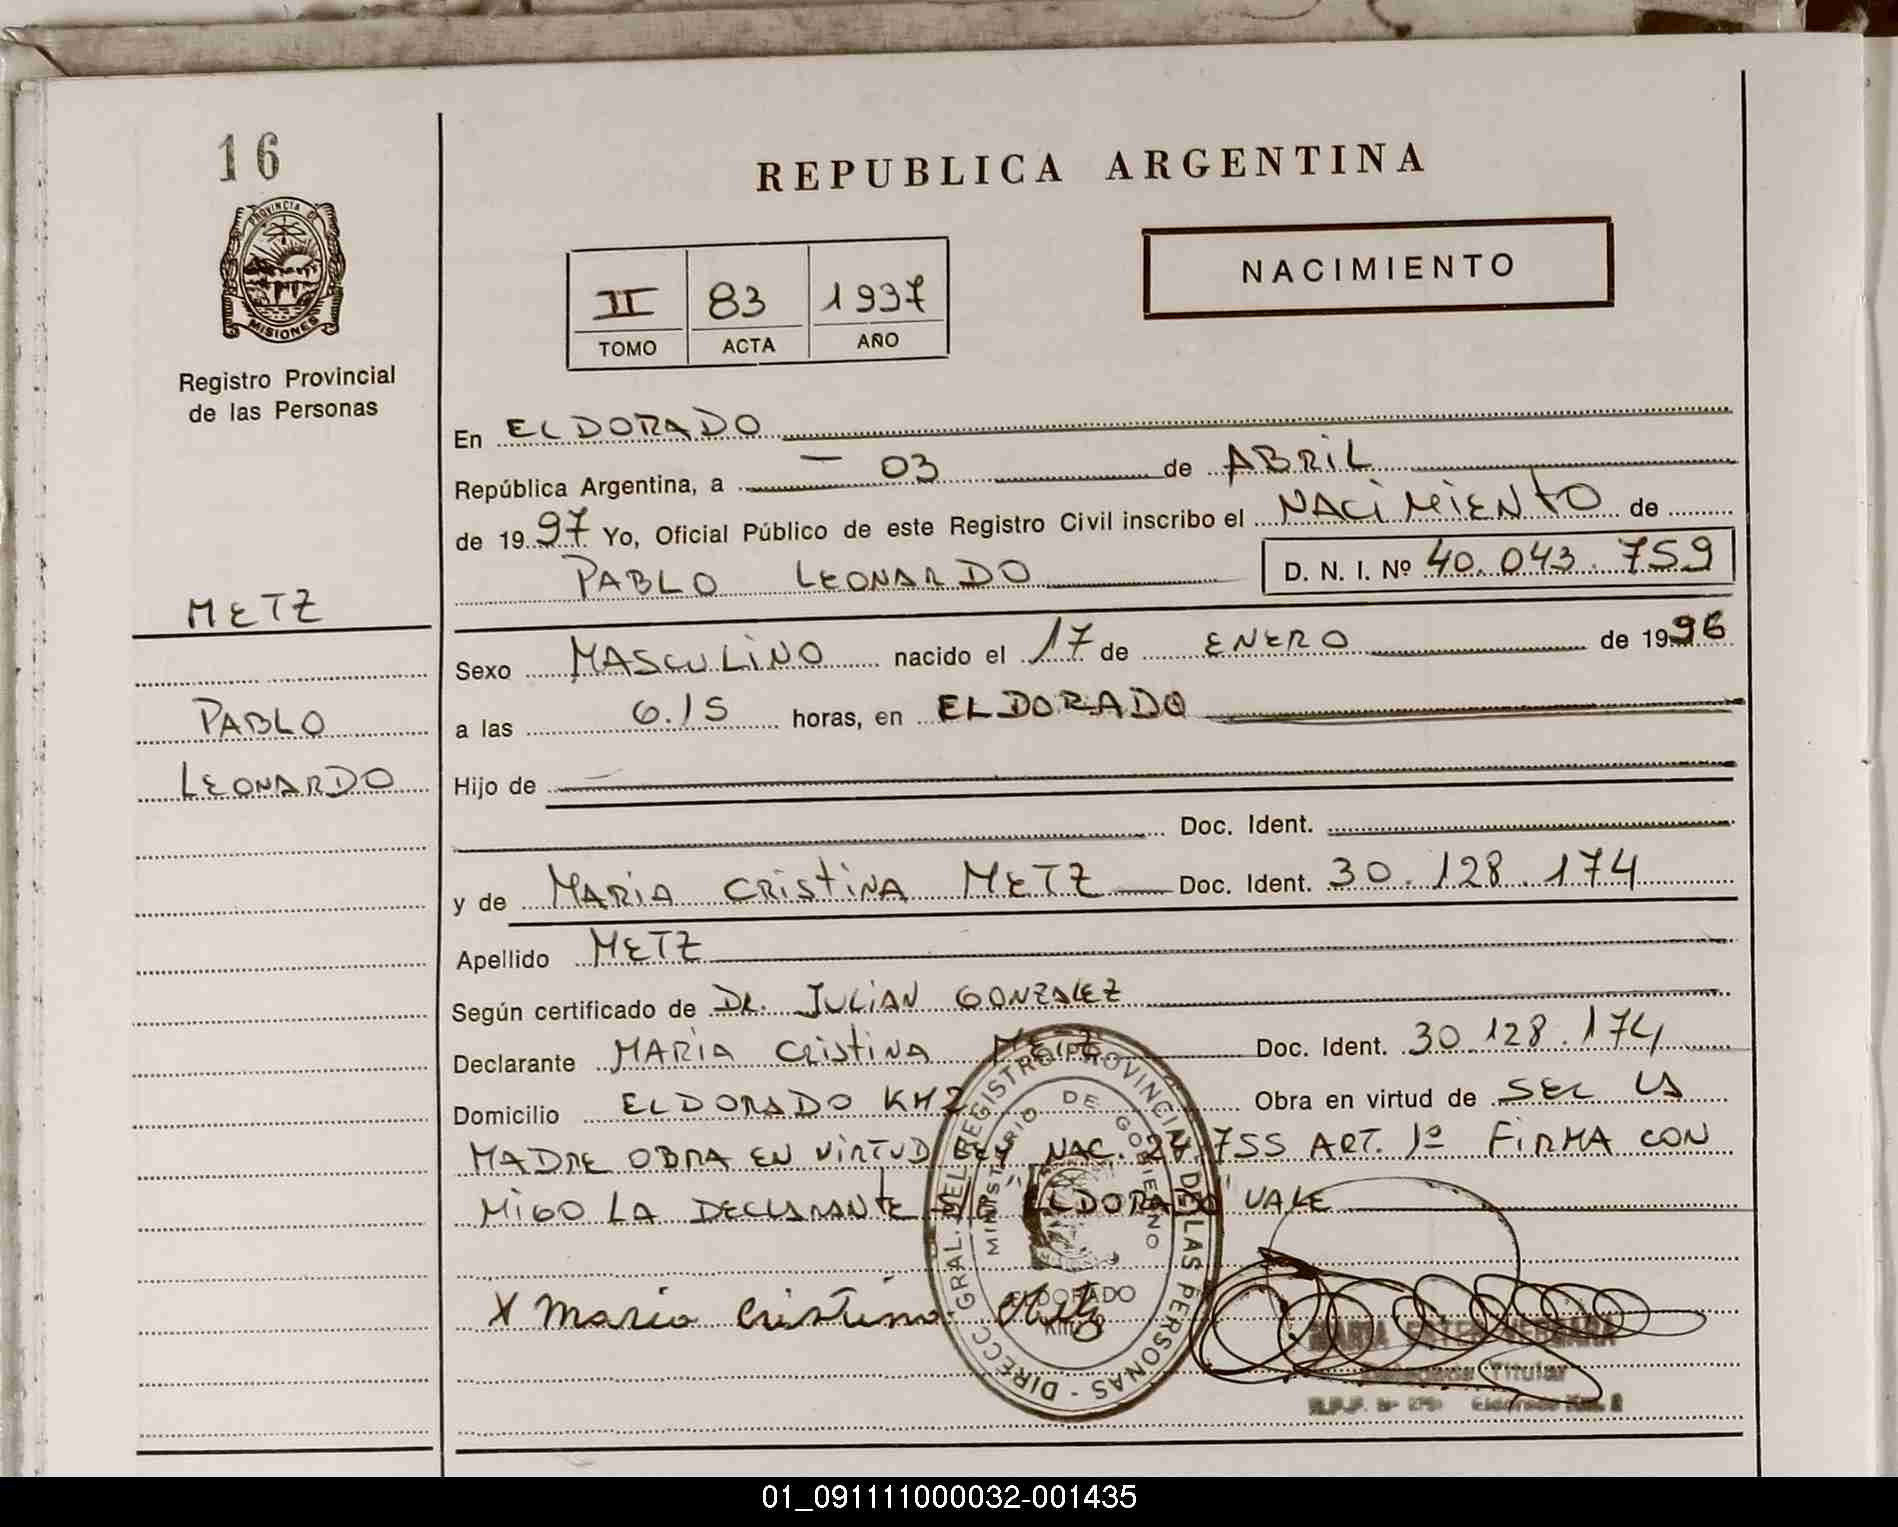 16
PROVINCIA DE
MISIONES
Registro Provincial
de las Personas
METZ
PABLO
LEONARDO
REPUBLICA ARGENTINA
NACIMIENTO
II 83 1997
TOMO ACTA AÑO
En ELDORADO
República Argentina, a 03 de ABRIL
de 1997 Yo, Oficial Público de este Registro Civil inscribo el NACIMIENTO de
PABLO LEONARDO D. N. I. Nº 40.043.759
Sexo MASCULINO nacido el 17 de ENERO de 1996
a las 6.15 horas, en ELDORADO
Hijo de
Doc. Ident.
y de MARIA CRISTINA METZ Doc. Ident. 30.128.174
Apellido METZ
Según certificado de DR. JULIAN GONZALEZ
Declarante MARIA CRISTINA METZ Doc. Ident. 30.128.174
Domicilio ELDORADO KM2 Obra en virtud de SER LA
MADRE OBRA EN VIRTUD LEY NAC. 24.755 ART. 1º FIRMA CON
MIGO LA DECLARANTE S/R "ELDORADO" VALE
X Maria Cristina Metz
DIRECC. GRAL. DEL REGISTRO PROVINCIAL DE LAS PERSONAS
MINISTERIO DE GOBIERNO
ELDORADO
Titular
Eldorado Km. 2
01_091111000032-001435